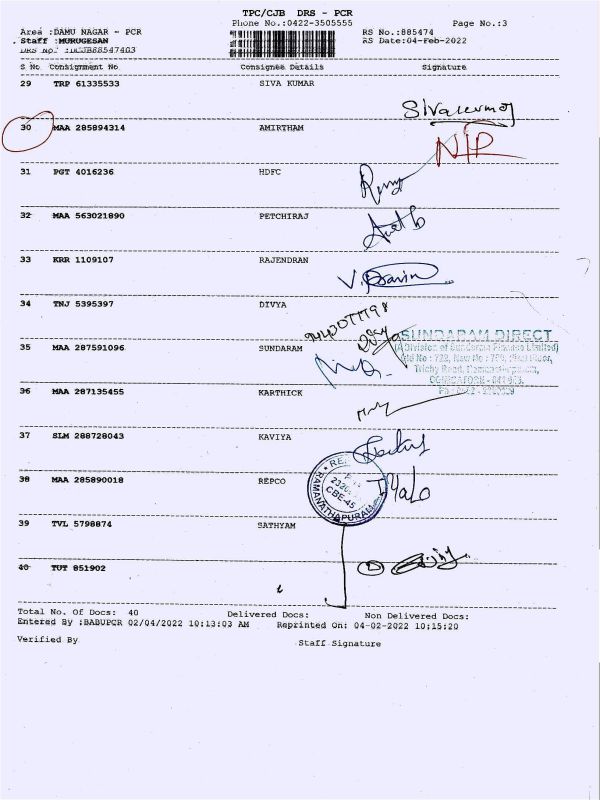 TPC/CJB DRS - PCR
Area :DAMU NAGAR - PCR Phone No.:0422-3505555 Page No.:3
Staff :MURUGESAN RS No.:885474
DRS No. :DCJB88547403 RS Date:04-Feb-2022
S No Consignment No Consignee Details Signature
29 TRP 61335533 SIVA KUMAR
Sivakumar
30 MAA 285894314 AMIRTHAM
N/P
31 PGT 4016236 HDFC
32 MAA 563021890 PETCHIRAJ
33 KRR 1109107 RAJENDRAN
34 TNJ 5395397 DIVYA
SUNDARAM DIRECT
(A Division of Sundaram Finance Limited)
35 MAA 287591096 SUNDARAM
Trichy Road,
36 MAA 287135455 KARTHICK
37 SLM 288728043 KAVIYA
38 MAA 285890018 REPCO
CBE-45
RAMANATHAPURAM
39 TVL 5798874 SATHYAM
40 TUT 851902
Total No. Of Docs: 40 Delivered Docs: Non Delivered Docs:
Entered By :BABUPCR 02/04/2022 10:13:03 AM Reprinted On: 04-02-2022 10:15:20
Verified By Staff Signature